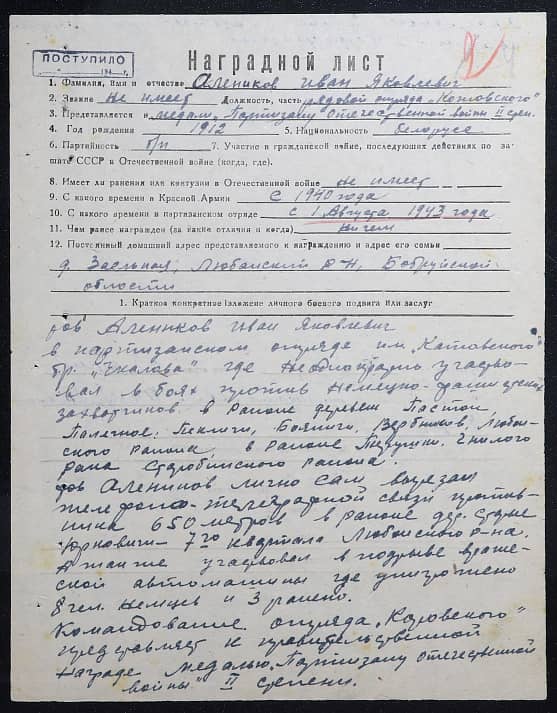 ПОСТУПИЛО
194 г.
Наградной лист
1. Фамилия, имя и отчество Алеников Иван Яковлевич
2. Звание Не имеет Должность, часть рядовой отряда „Котовского"
3. Представляется к медали „Партизану Отечественной войны II степ.
4. Год рождения 1912 5. Национальность белорусс
6. Партийность б/п 7. Участие в гражданской войне, последующих действиях по за-
щите СССР и Отечественной войне (когда, где).
8. Имеет ли ранения или контузии в Отечественной войне не имеет
9. С какого времени в Красной Армии С 1940 года
10. С какого времени в партизанском отряде с 1 Августа 1943 года
11. Чем ранее награжден (за какие отличия и когда) Ничем
12. Постоянный домашний адрес представляемого к награждению и адрес его семьи
д. Заельная, Любанский р-н, Бобруйской
области
1. Краткое конкретное изложение личного боевого подвига или заслуг
тов Алеников Иван Яковлевич
в партизанском отряде им. „Катовского"
бр. „Чкалова" где неоднократно участво-
вал в боях против немецко-фашистских
захватчиков. в районе деревень Пастом
Палечное, Бояничи, Вербников, Любан-
ского района, в районе
рана Старобинского района.
тов Алеников лично сам вырезал
телефоно-телеграфной связи против-
ника 650 метров в районе дер. Старые
Юрковичи - 7го квартала Любанского р-на.
А также участвовал в подрыве враже-
ской автомашины где уничтожено
8 чел. Немцев и 3 ранено.
Командование отряда „Котовского"
представляет к правительственной
Награде Медалью „Партизану Отечественной
войны" II степени.